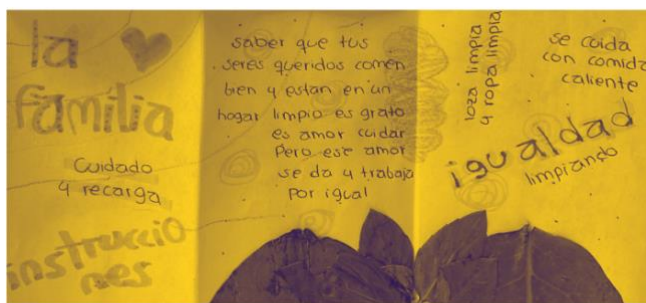 la
familia
Cuidado
y recarga
instruccio
nes
saber que tus
seres queridos comen
bien y estan en un
hogar limpio es grato
es amor cuidar
Pero ese amor
se da y trabaja
por igual
loza limpia
y ropa limpia
se cuida
con comida
caliente
igualdad
limpiando